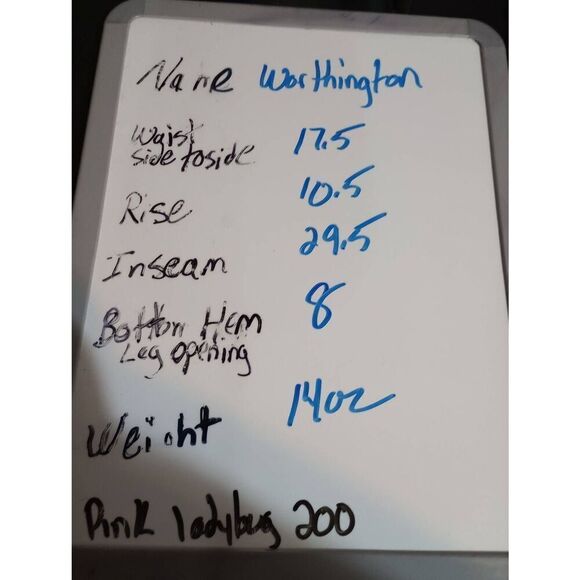 Name Worthington
Waist
side to side 17.5
Rise 10.5
Inseam 29.5
Bottom Hem 8
Leg opening
Weight 14oz
Pink ladybug 200